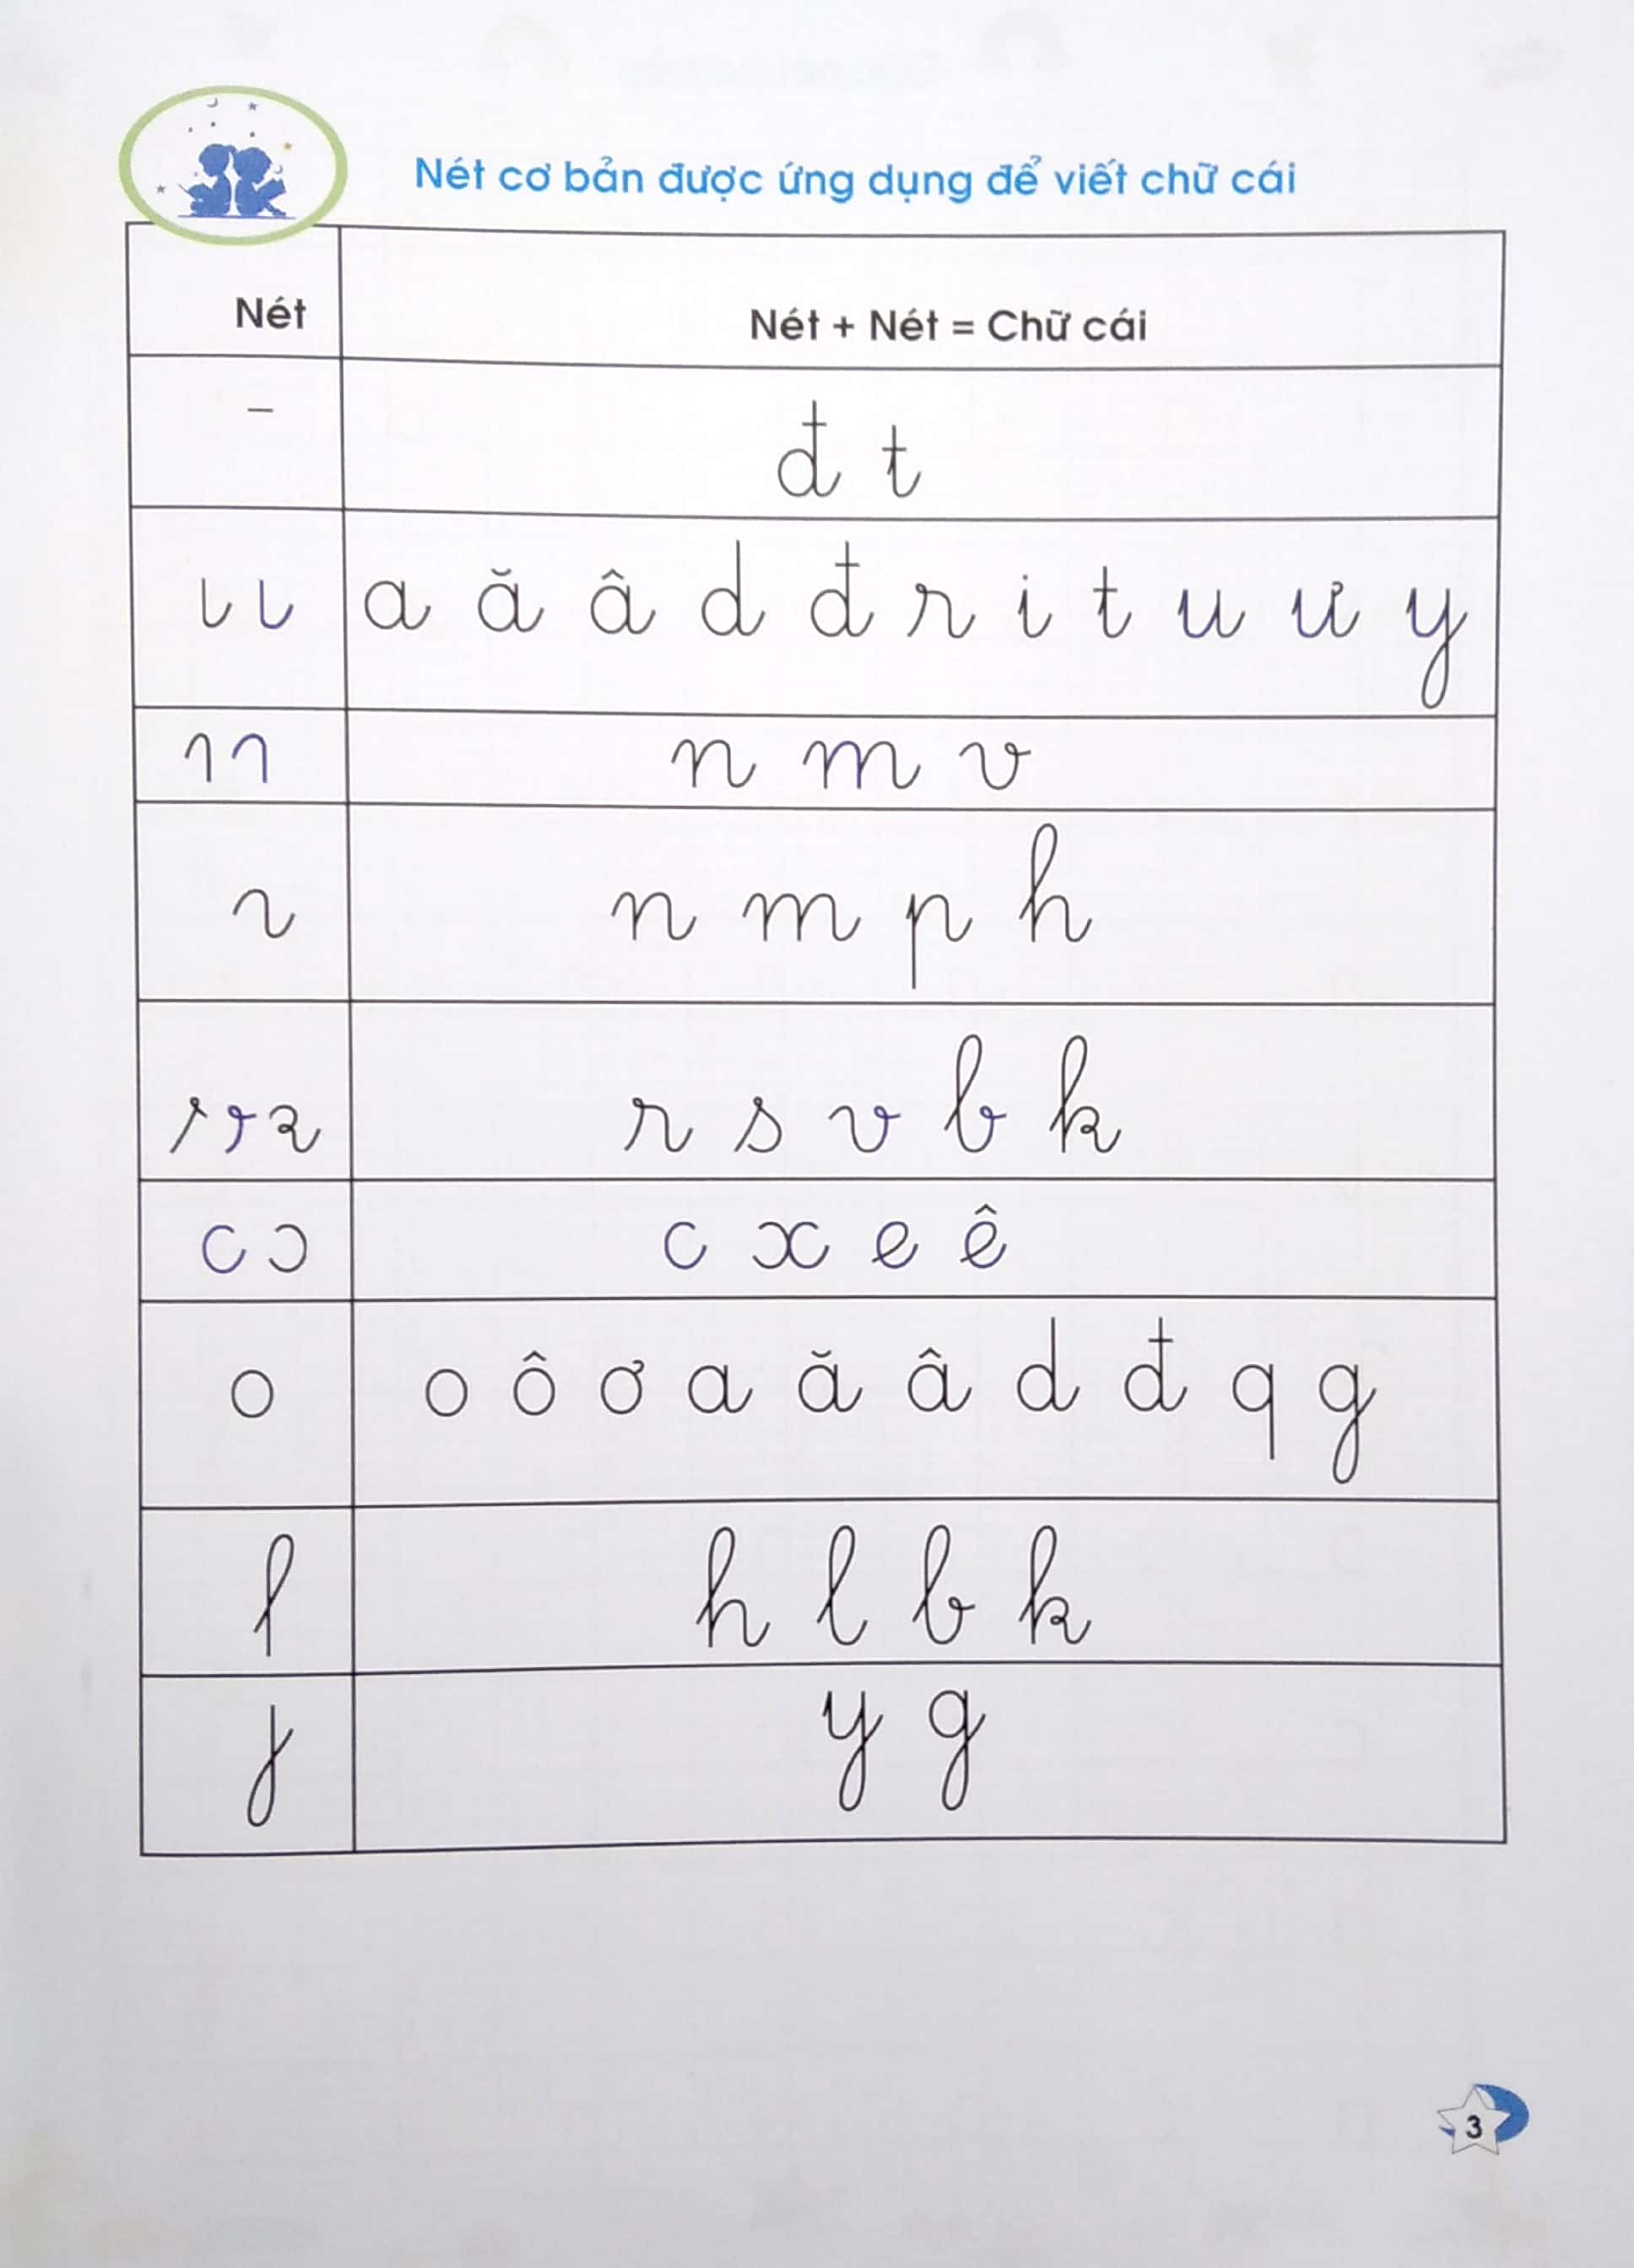 Nét cơ bản được ứng dụng để viết chữ cái
Nét
Nét + Nét = Chữ cái
–
đ t
ɩ ɩ
a ă â d đ r i t u ư y
n m v
n m p h
r s v b k
c ɔ
c x e ê
o
o ô ơ a ă â d đ q g
h l b k
y g
3